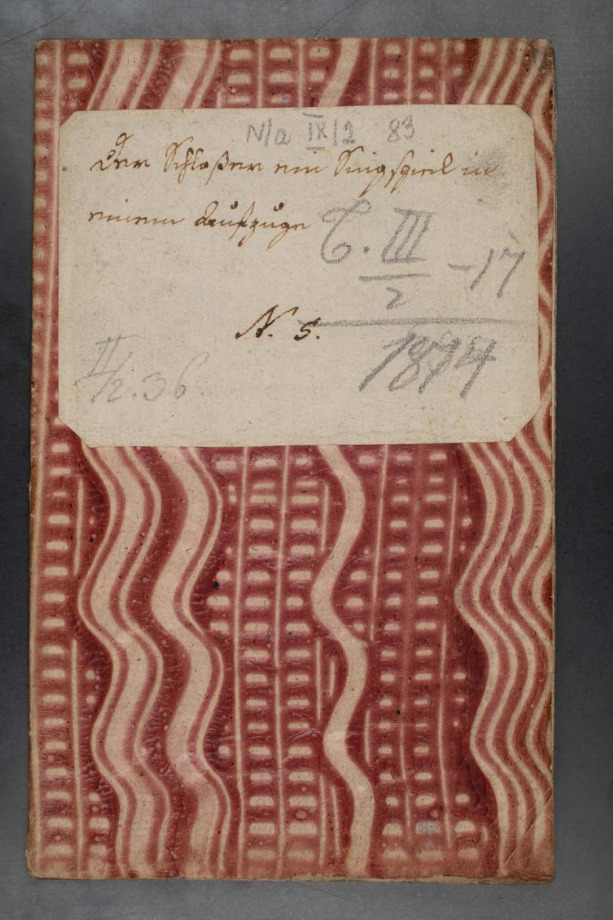 N/a IX/2 83
Der Schloßer ein Singspiel in
einem Aufzuge
C. III/2 - 17
N. 5.
1874
II/2. 36